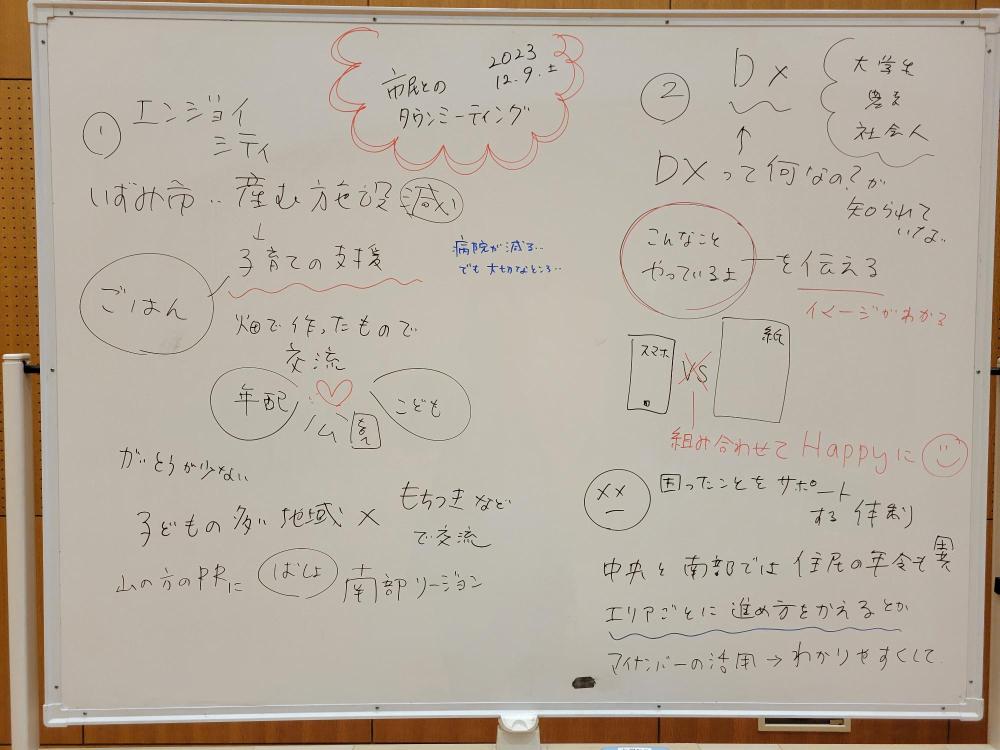 市民との
タウンミーティング
2023
12.9.土
①
エンジョイ
シティ
いずみ市‥産む施設 減い
↓
子育ての支援
ごはん
病院が減る‥
でも大切なところ‥
畑で作ったもので
交流
年配
こども
公園
がいとうが少ない
子どもの多い地域 ×
もちつきなど
で交流
山の方のPRに
ばしょ
南部リージョン
②
DX
大学生
農家
社会人
↑
DXって何なの?が
知られて
いない
こんなこと
やっているよ
を伝える
イメージがわかる
スマホ
VS
紙
組み合わせてHappyに
困ったことをサポート
する体制
中央と南部では住居の年令も異
エリアごとに進め方をかえるとか
マイナンバーの活用→わかりやすくして